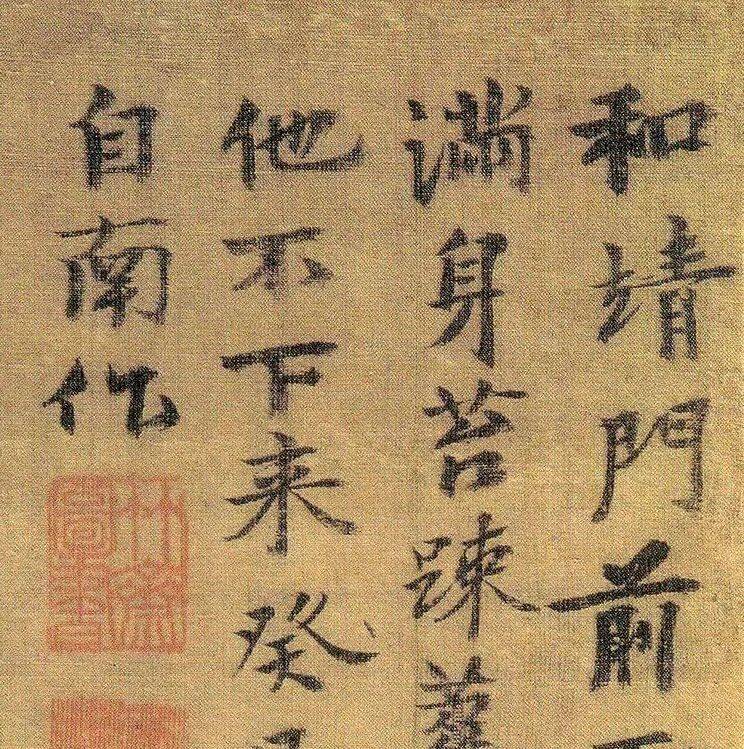 和靖門前
滿身苔踈
他不下来癸
自南作